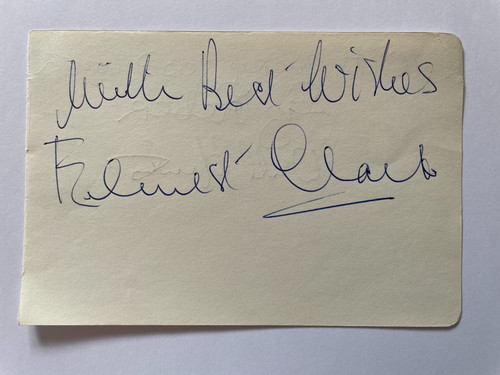 With Best Wishes
Ernest Clark